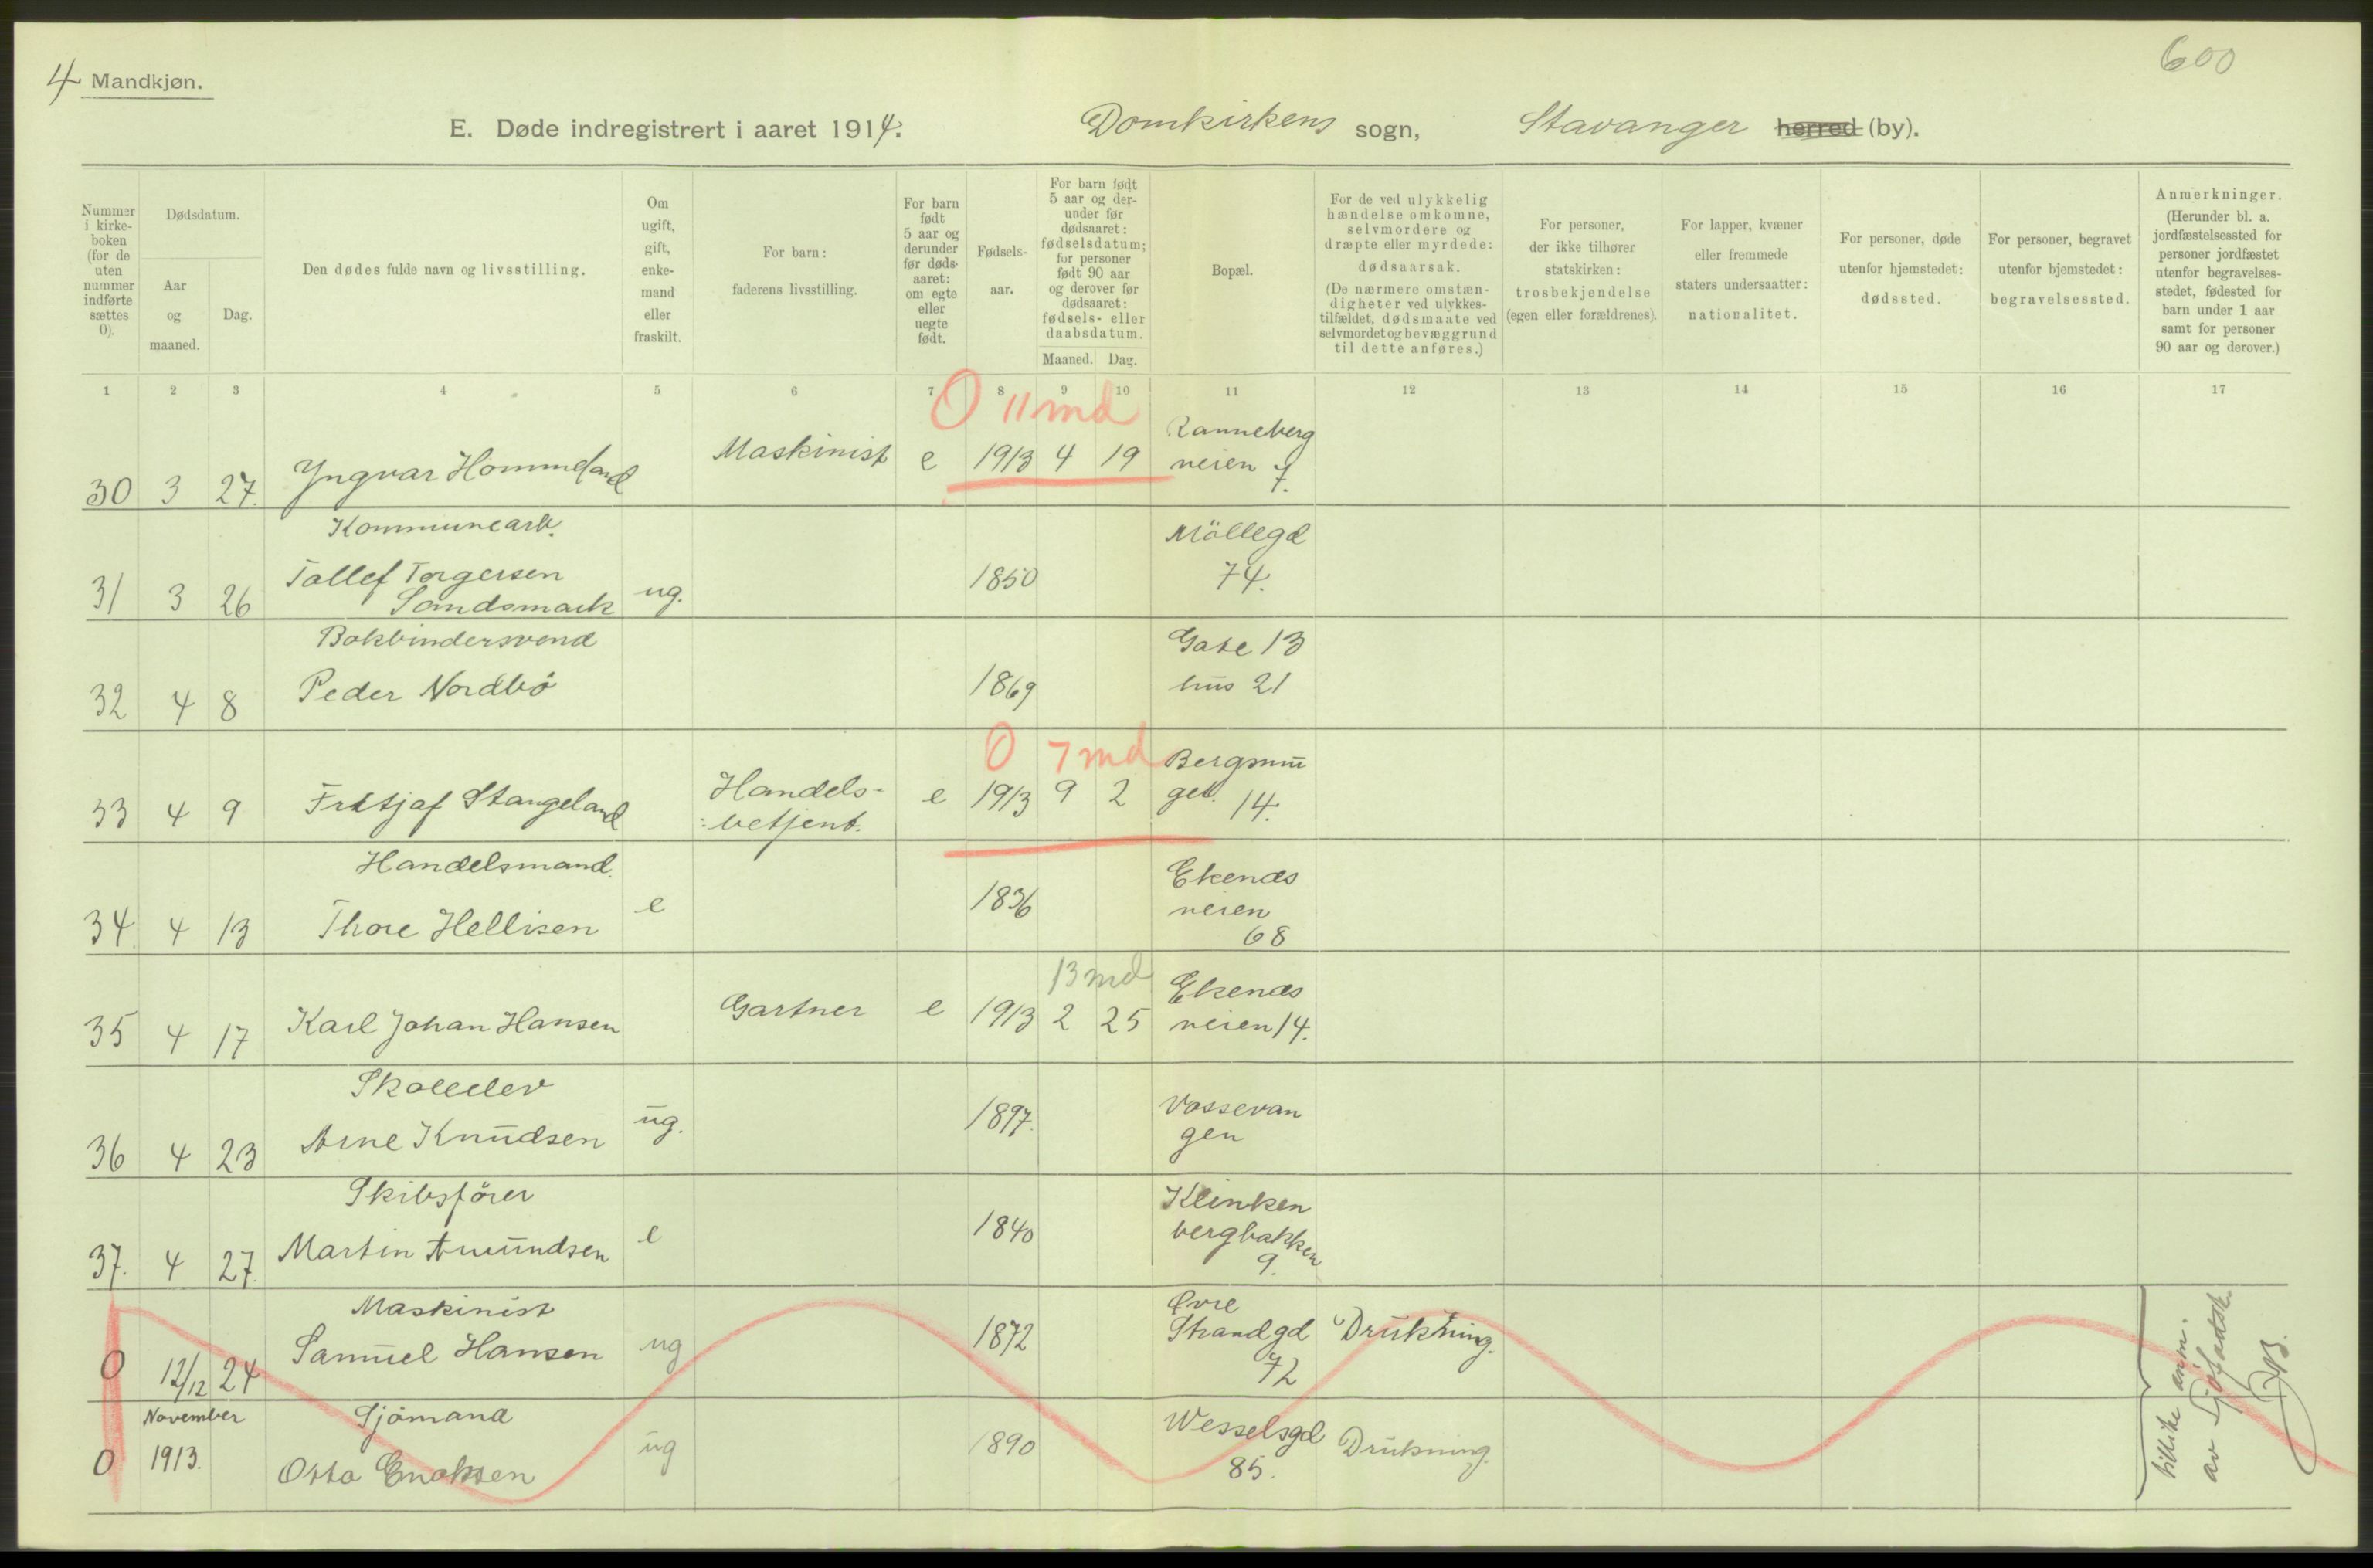 4 Mandkjøn.
600
E. Døde indregistrert i aaret 1914. Domkirkens sogn, Stavanger herred (by).
Nummer i kirke-boken (for de uten nummer indførte sættes 0).
Dødsdatum.
Aar og maaned.
Dag.
Den dødes fulde navn og livsstilling.
Om ugift, gift, enke-mand eller fraskilt.
For barn: faderens livsstilling.
For barn født 5 aar og derunder før døds-aaret: om egte eller uegte født.
Fødsels-aar.
For barn født 5 aar og der-under før dødsaaret: fødselsdatum; for personer født 90 aar og derover før dødsaaret: fødsels- eller daabsdatum.
Maaned. Dag.
Bopæl.
For de ved ulykkelig hændelse omkomne, selvmordere og dræpte eller myrdede: dødsaarsak. (De nærmere omstæn-digheter ved ulykkes-tilfældet, dødsmaate ved selvmordet og bevæggrund til dette anføres.)
For personer, der ikke tilhører statskirken: trosbekjendelse (egen eller forældrenes).
For lapper, kvæner eller fremmede staters undersaatter: nationalitet.
For personer, døde utenfor hjemstedet: dødssted.
For personer, begravet utenfor hjemstedet: begravelsessted.
Anmerkninger. (Herunder bl. a. jordfæstelsessted for personer jordfæstet utenfor begravelses-stedet, fødested for barn under 1 aar samt for personer 90 aar og derover.)
1 2 3 4 5 6 7 8 9 10 11 12 13 14 15 16 17
0 11 md
30 3 27. Yngvar Hommeland Maskinist e 1913 4 19 Ranneberg
veien 7.
Kommunearb.
31 3 26 Tollef Torgersen
Sandsmark ug. 1850 Möllegd
74.
Bokbindersvend
32 4 8 Peder Nordbö 1869 Gate 13
hus 21
0 7 md
33 4 9 Fritjof Stangeland Handels-
:betjent. e 1913 9 2 Bergsmu
get. 14.
Handelsmand.
34. 4 13 Thore Hellisen e 1836 Ekenæs
veien
68
13 md
35 4 17 Karl Johan Hansen Gartner e 1913 2 25 Ekenæs
veien 14.
Skoleelev
36 4 23 Arne Knudsen ug. 1897. Vossevan
gen
Skibsförer
37. 4 27. Martin Amundsen e 1840 Klinken
bergbakken
9.
Maskinist
0 12/12 24 Samuel Hansen ug 1872 Øvre
Strandgd
72 Drukning.
November Sjömand
0 1913. Otto Enoksen ug 1890 Wesselsgd
85. Drukning.
tillike anm.
av